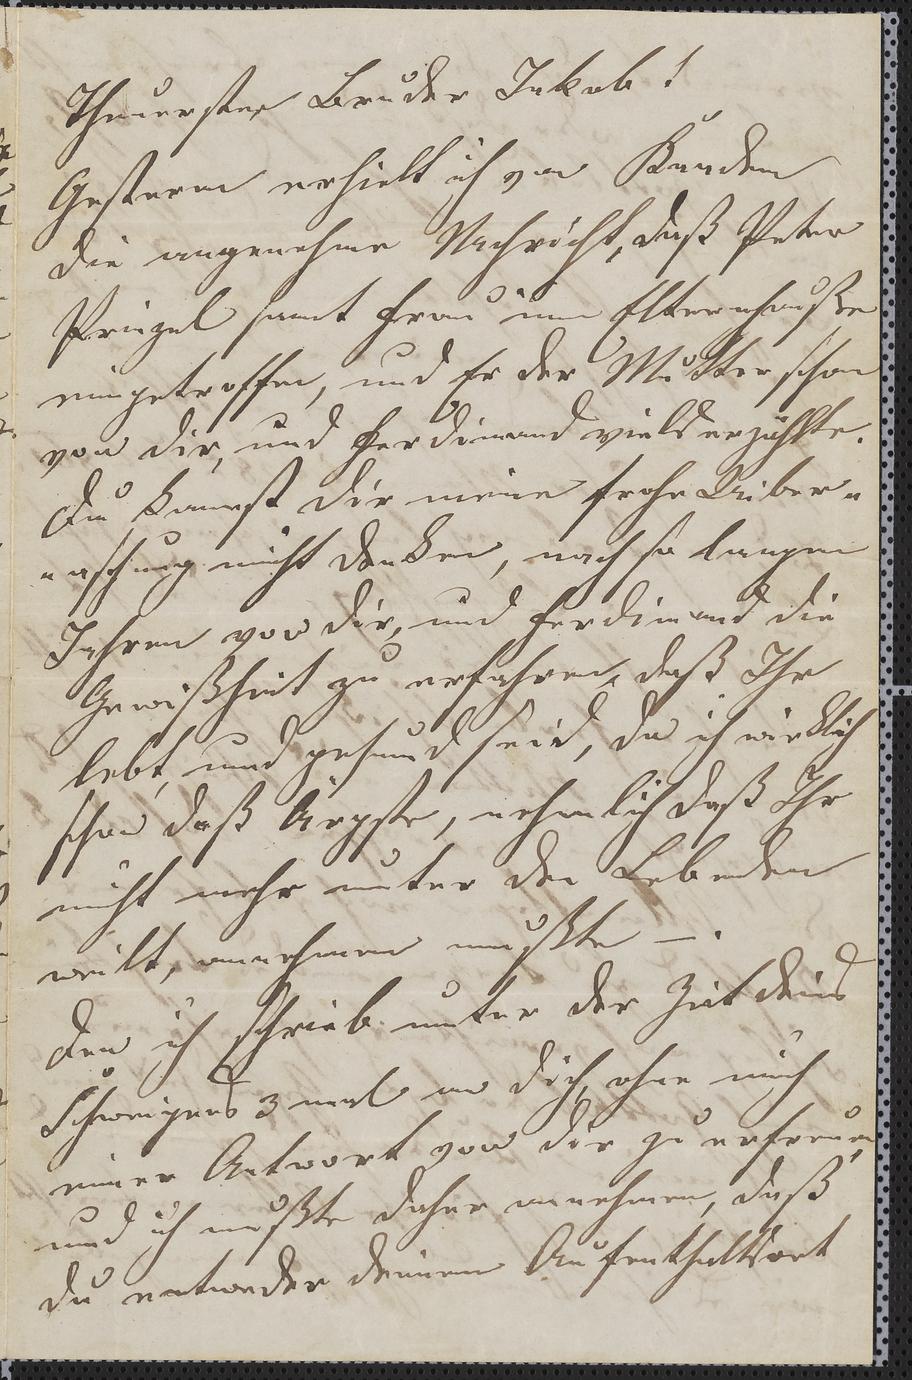 Theuerster Bruder Jakob!
Gestern erhielt ich von Kunden
die angenehme Nachricht, daß Peter
Pringel samt Frau im Elternhauße
eingetroffen, und Er der Mutter schon
von dir, und Ferdinand viels erzählte.
Du kanst dir meine frohe Uiber-
raschung nicht denken, nach so langen
Jahren von dir, und Ferdinand die
Gewißheit zu erfahren, daß Ihr
lebt, und gesund seid, da ich wirklich
schon daß Ärgste, nehmlich daß Ihr
nicht mehr unter den Lebenden
weilt, annehmen mußte —.
Den ich schrieb unter der Zeit deines
Schweigens 3 mal an dich, ohne mich
einer Antwort von dir zu erfreuen,
und ich mußte daher annehmen, daß
du entweder deinen Aufenthaltsort